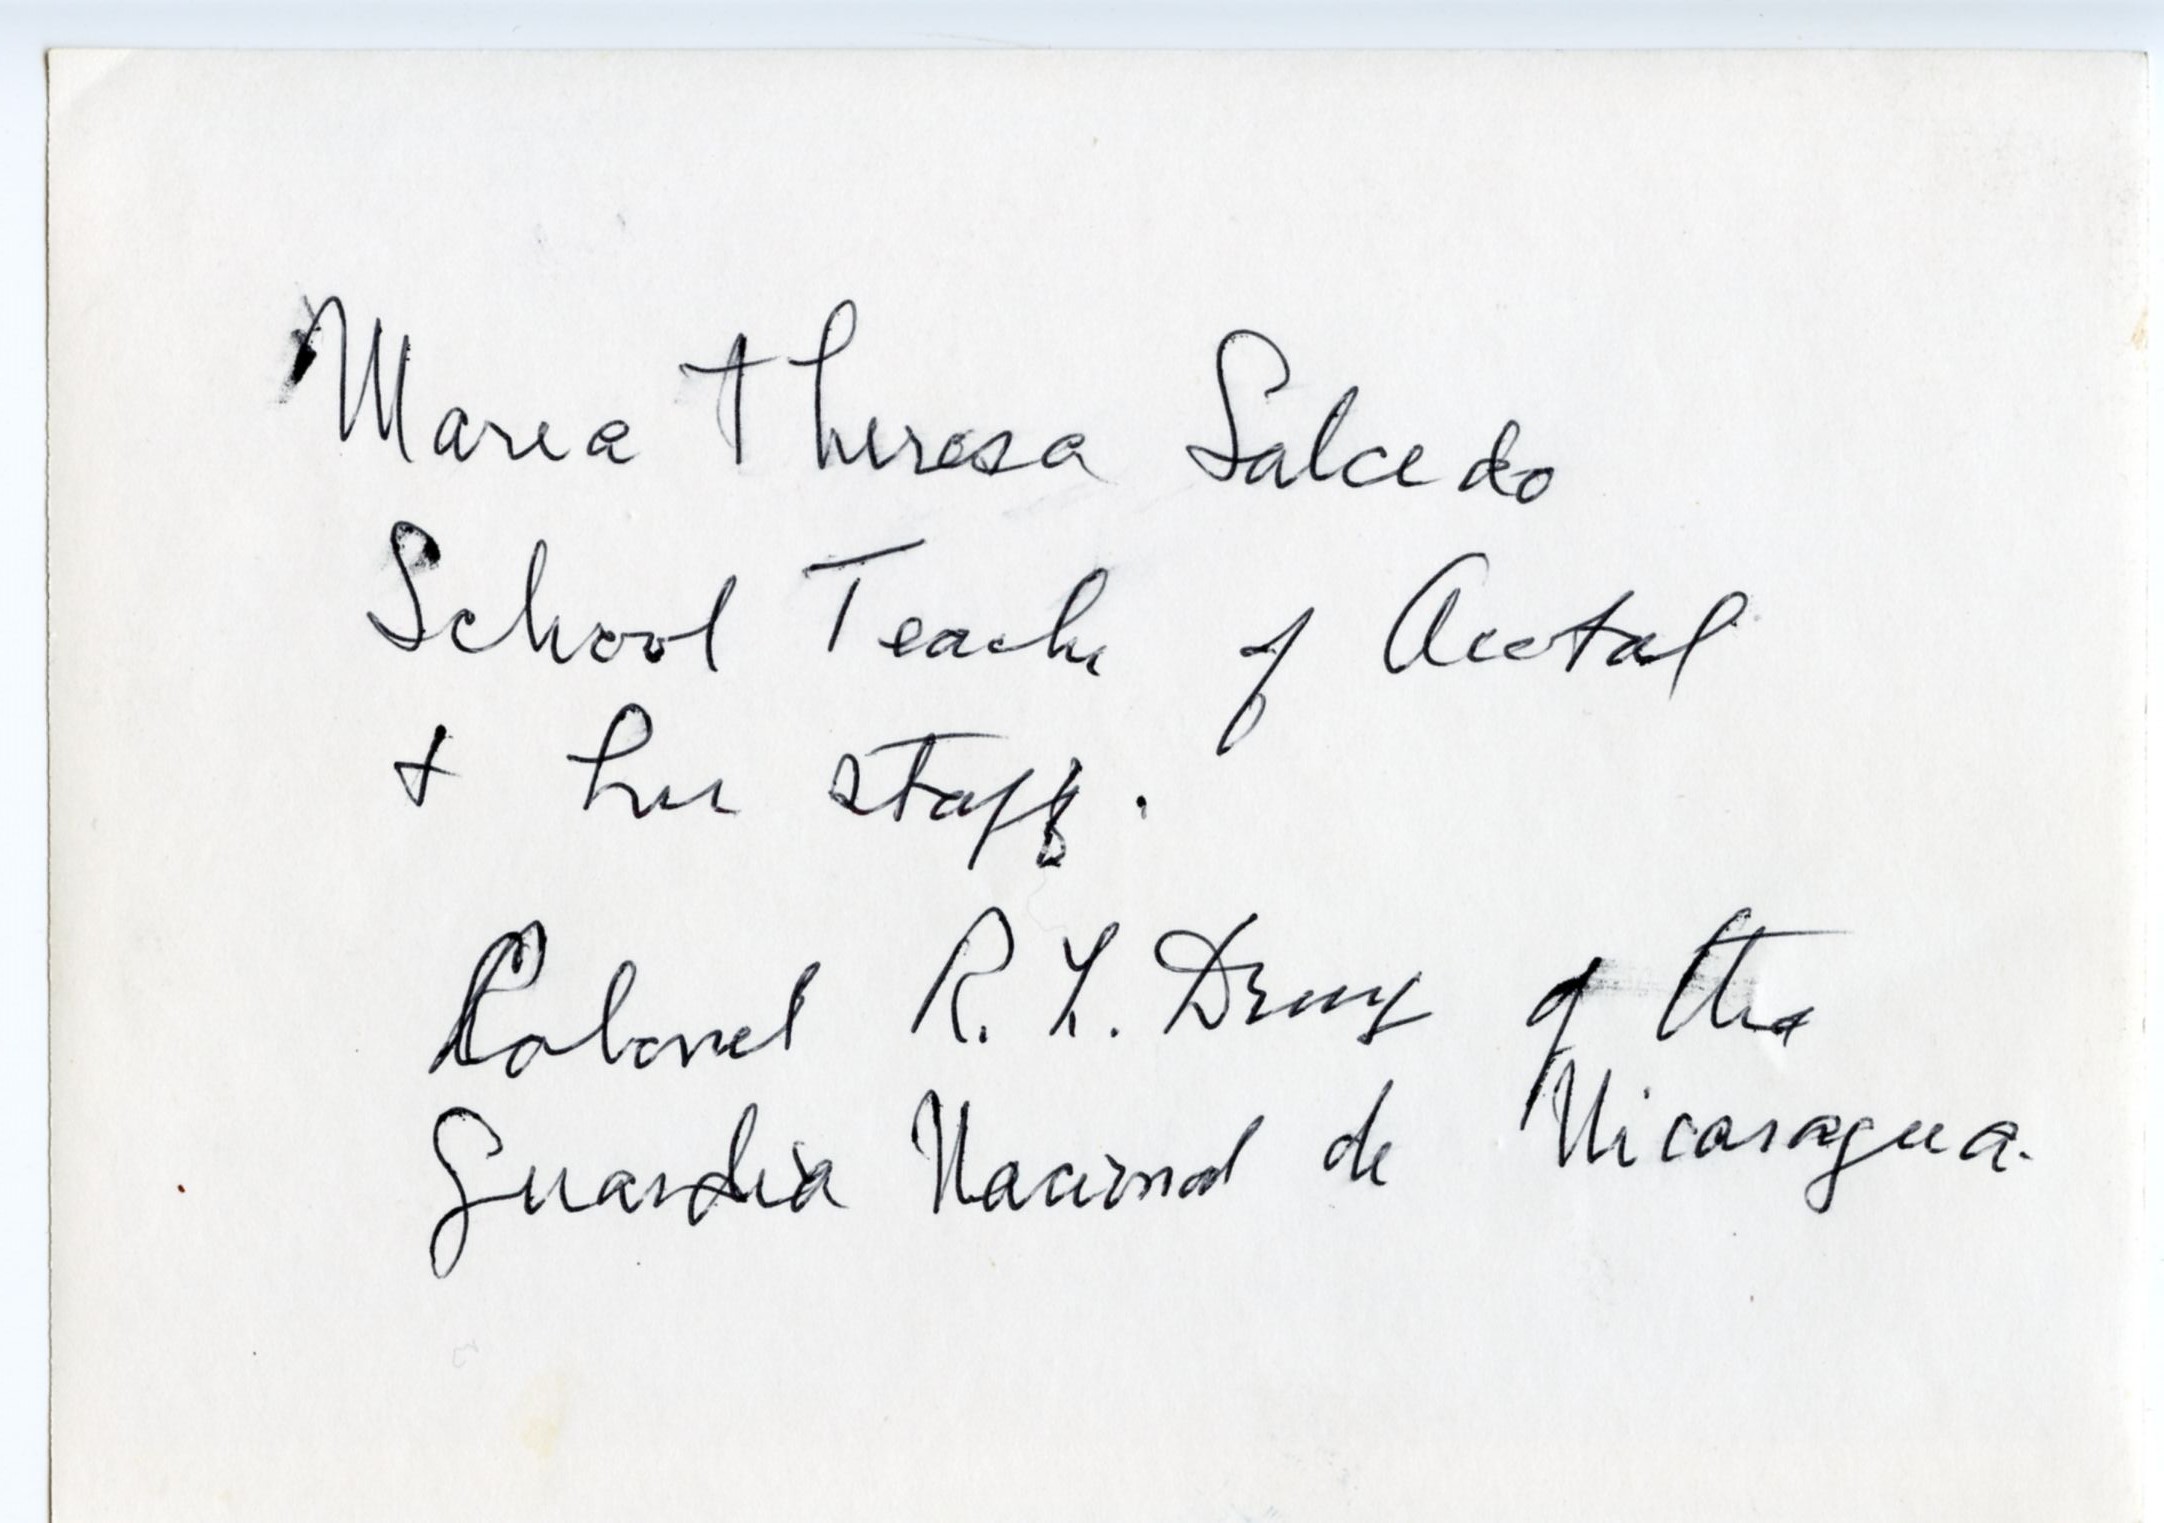 Maria Theresa Salcedo
School Teacher of Ocotal
& her staff.
Colonel R. L. Denny of the
Guardia Nacional de Nicaragua.